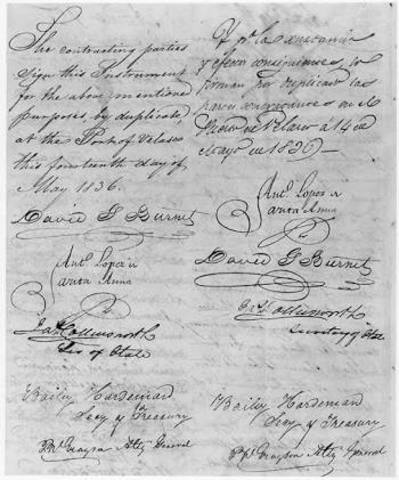 The contracting parties
sign this Instrument
for the above mentioned
purposes, by duplicate,
at the Port of Velasco
this fourteenth day of
May 1836.
David G Burnet
Anto. Lopez de
Santa Anna
Jas Collinsworth
Sec of State
Baily Hardeman
Secy of Treasury
P W Grayson Atty General
Y pa. la
y efectos consiguientes, lo
firman por duplicado las
partes contratantes en el
de Velasco á 14 de
Mayo de 1836—
Anto. Lopez de
Santa Anna
David G Burnet
Jas Collinsworth
Secretary of State
Baily Hardeman
Secy of Treasury
P W Grayson Atty General